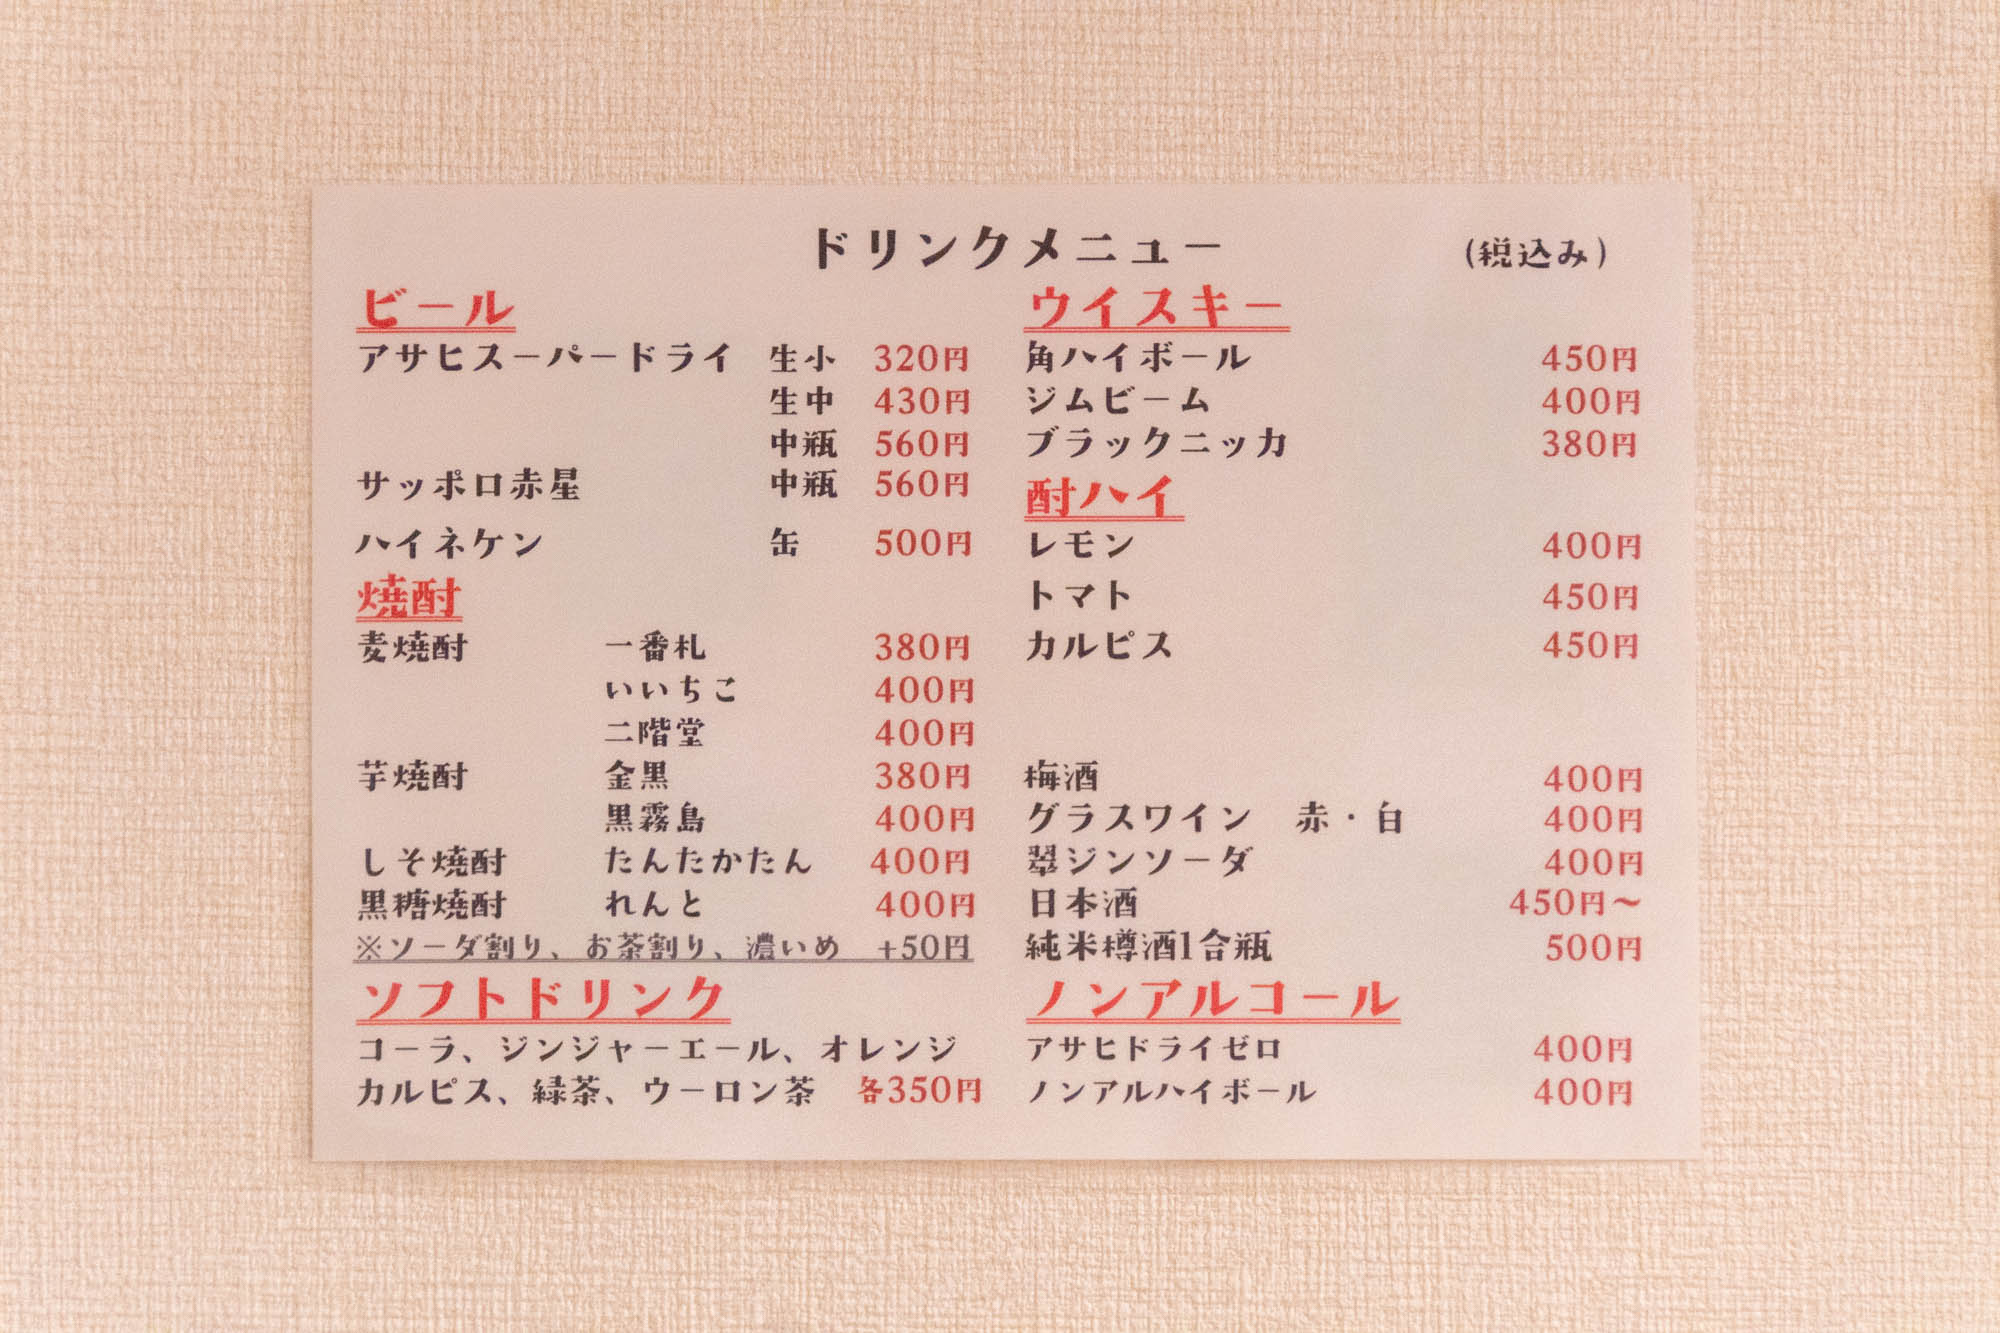 ドリンクメニュー (税込み)
ビール
アサヒスーパードライ 生小 320円
生中 430円
中瓶 560円
サッポロ赤星 中瓶 560円
ハイネケン 缶 500円
焼酎
麦焼酎 一番札 380円
いいちこ 400円
二階堂 400円
芋焼酎 金黒 380円
黒霧島 400円
しそ焼酎 たんたかたん 400円
黒糖焼酎 れんと 400円
※ソーダ割り、お茶割り、濃いめ +50円
ソフトドリンク
コーラ、ジンジャーエール、オレンジ
カルピス、緑茶、ウーロン茶 各350円
ウイスキー
角ハイボール 450円
ジムビーム 400円
ブラックニッカ 380円
酎ハイ
レモン 400円
トマト 450円
カルピス 450円
梅酒 400円
グラスワイン 赤・白 400円
翠ジンソーダ 400円
日本酒 450円～
純米樽酒1合瓶 500円
ノンアルコール
アサヒドライゼロ 400円
ノンアルハイボール 400円